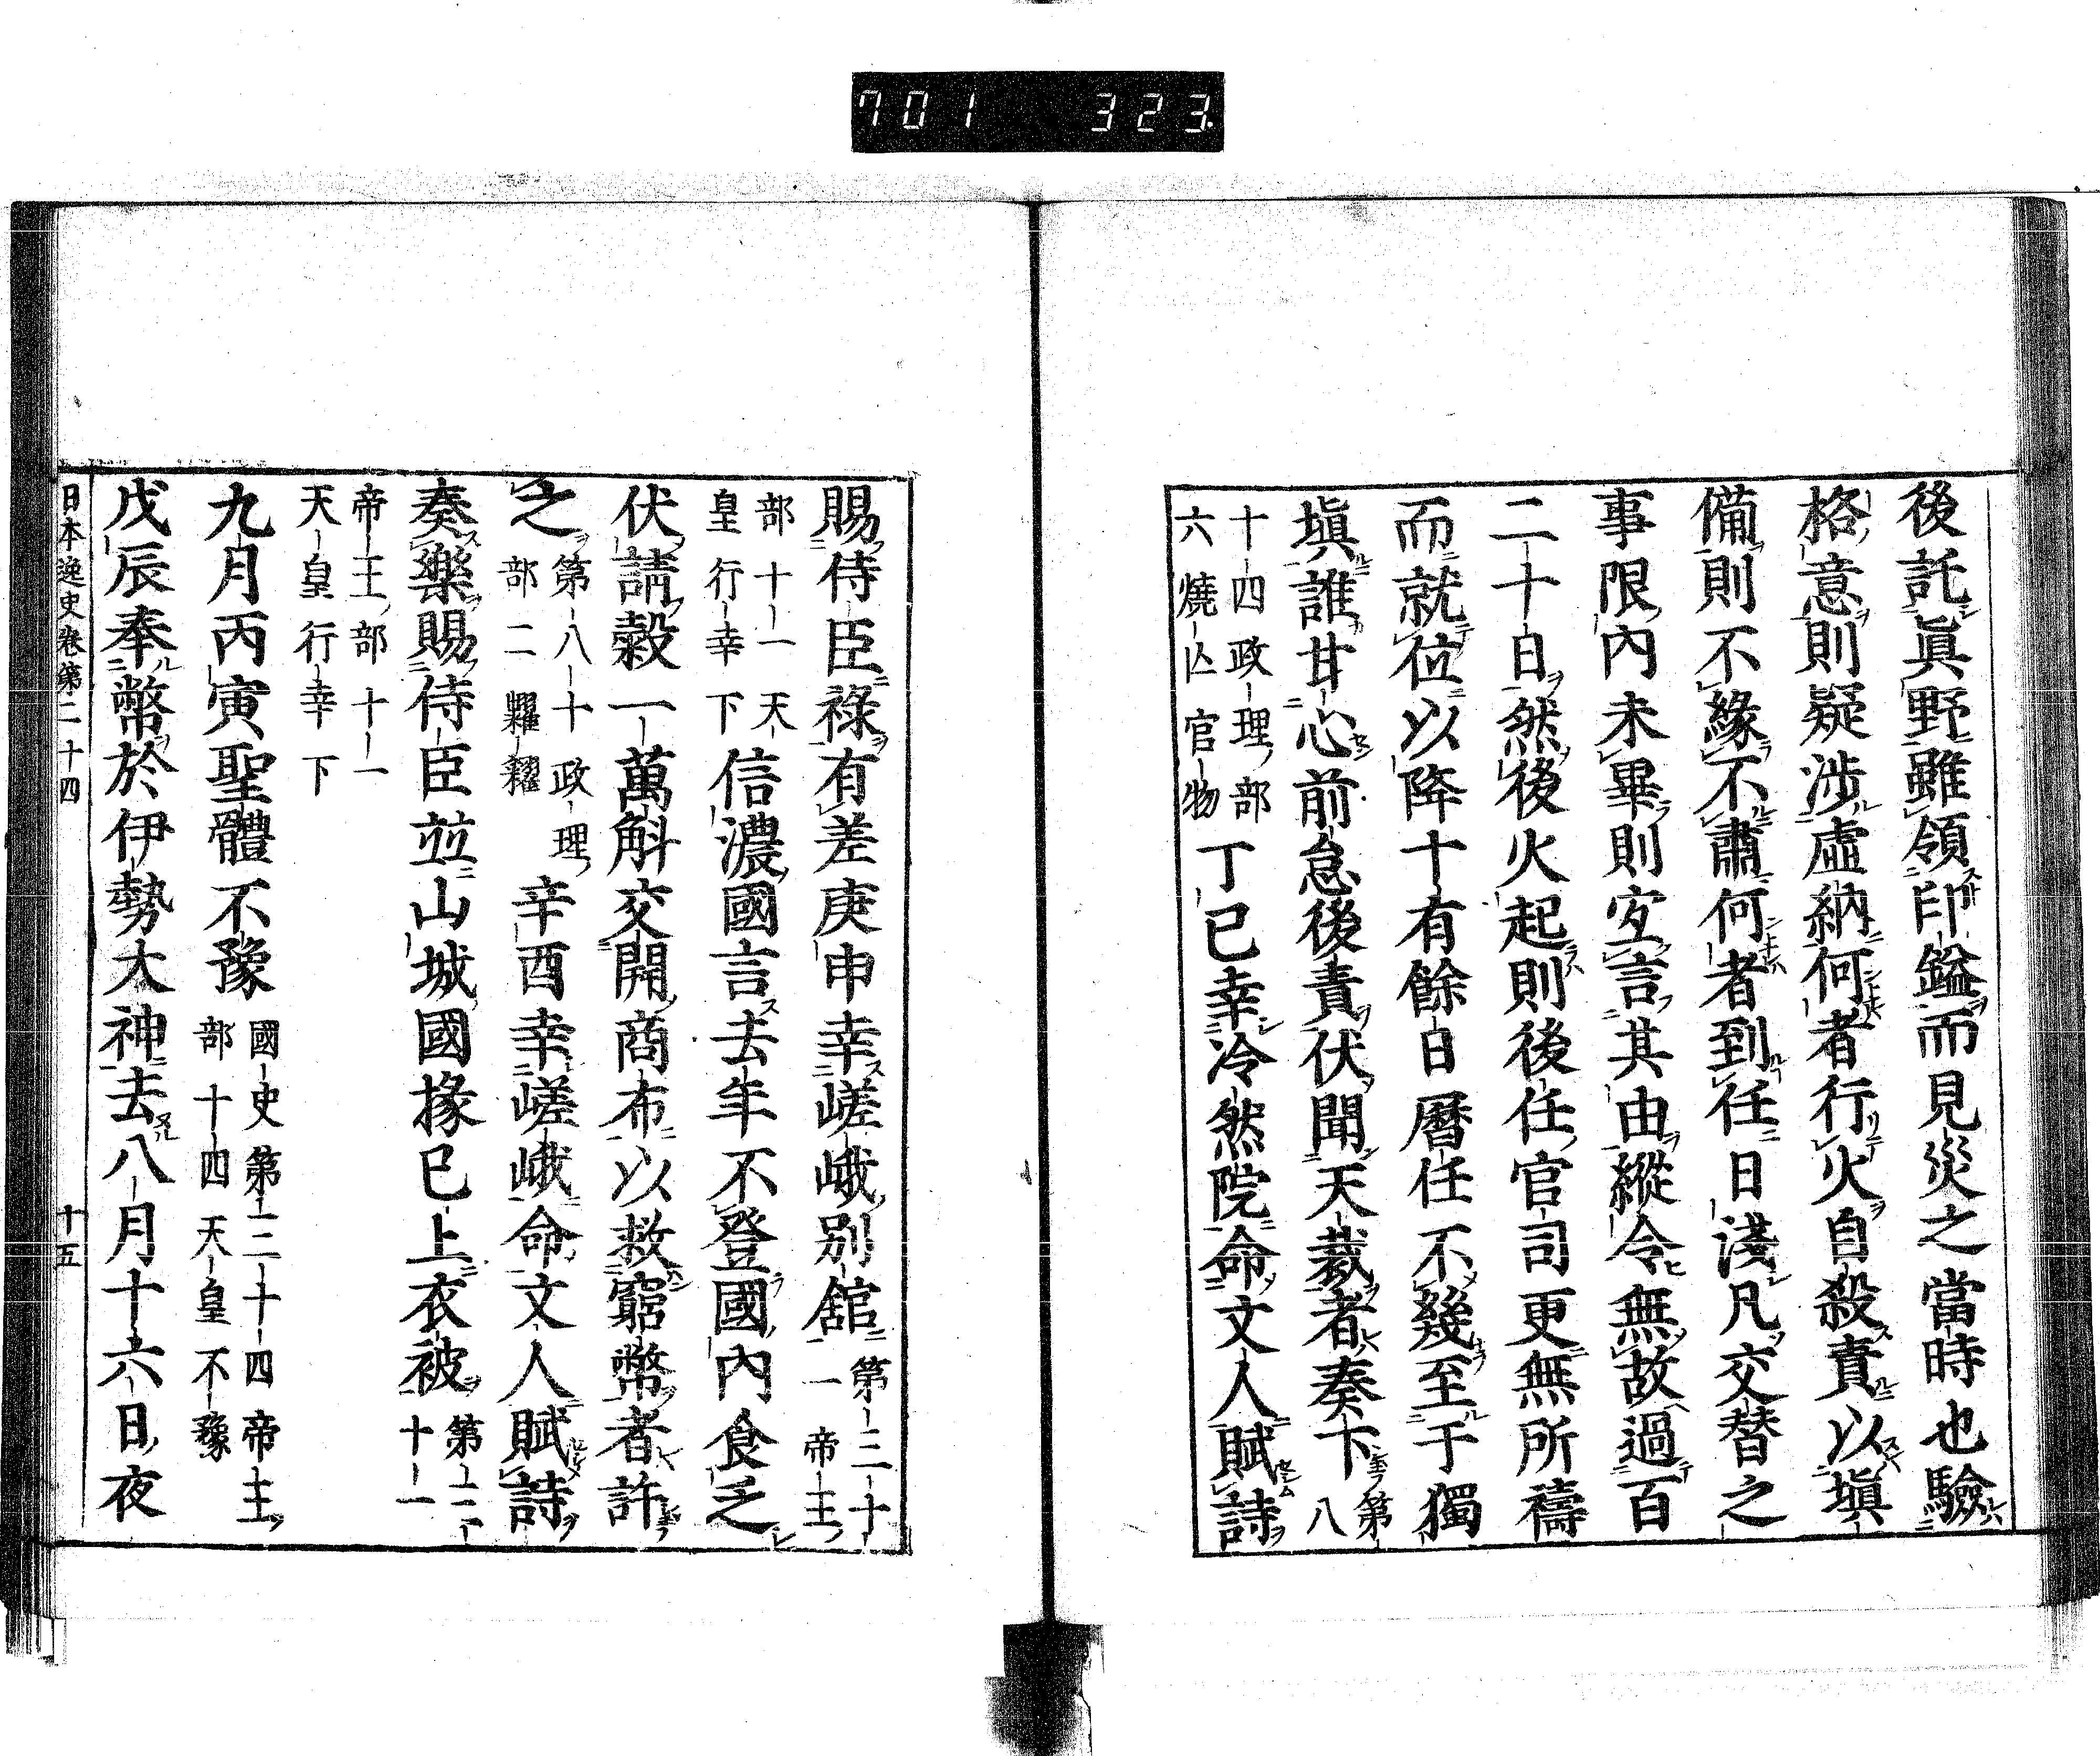 701 323
後託眞野雖領印鎰而見災之當時也驗
格意則疑渉虚納何者行火自殺責以塡
備則不緣不肅何者到任日淺凡交替之
事限內未畢則宜言其由縱令無故過百
二十日然後火起則後任官司更無所禱
而就位以降十有餘日曆任不幾至于獨
塡誰甘心前怠後責伏聞天裁者奏卞第八
十四政理部
六燒亾官物丁巳幸冷然院命文人賦詩
賜侍臣祿有差庚申幸嵯峨別舘第三十
一帝王
部十一天
皇行幸下信濃國言去年不登國內食乏
伏請穀一萬斛交開商布以救窮幣者許
之第八十政理
部二糶糴辛酉幸嵯峨命文人賦詩
奏樂賜侍臣並山城國掾已上衣被第三
十一
帝王部十一
天皇行幸下
九月丙寅聖體不豫國史第三十四帝王
部十四天皇不豫
戊辰奉幣於伊勢大神去八月十六日夜
日本逸史卷第二十四 十五